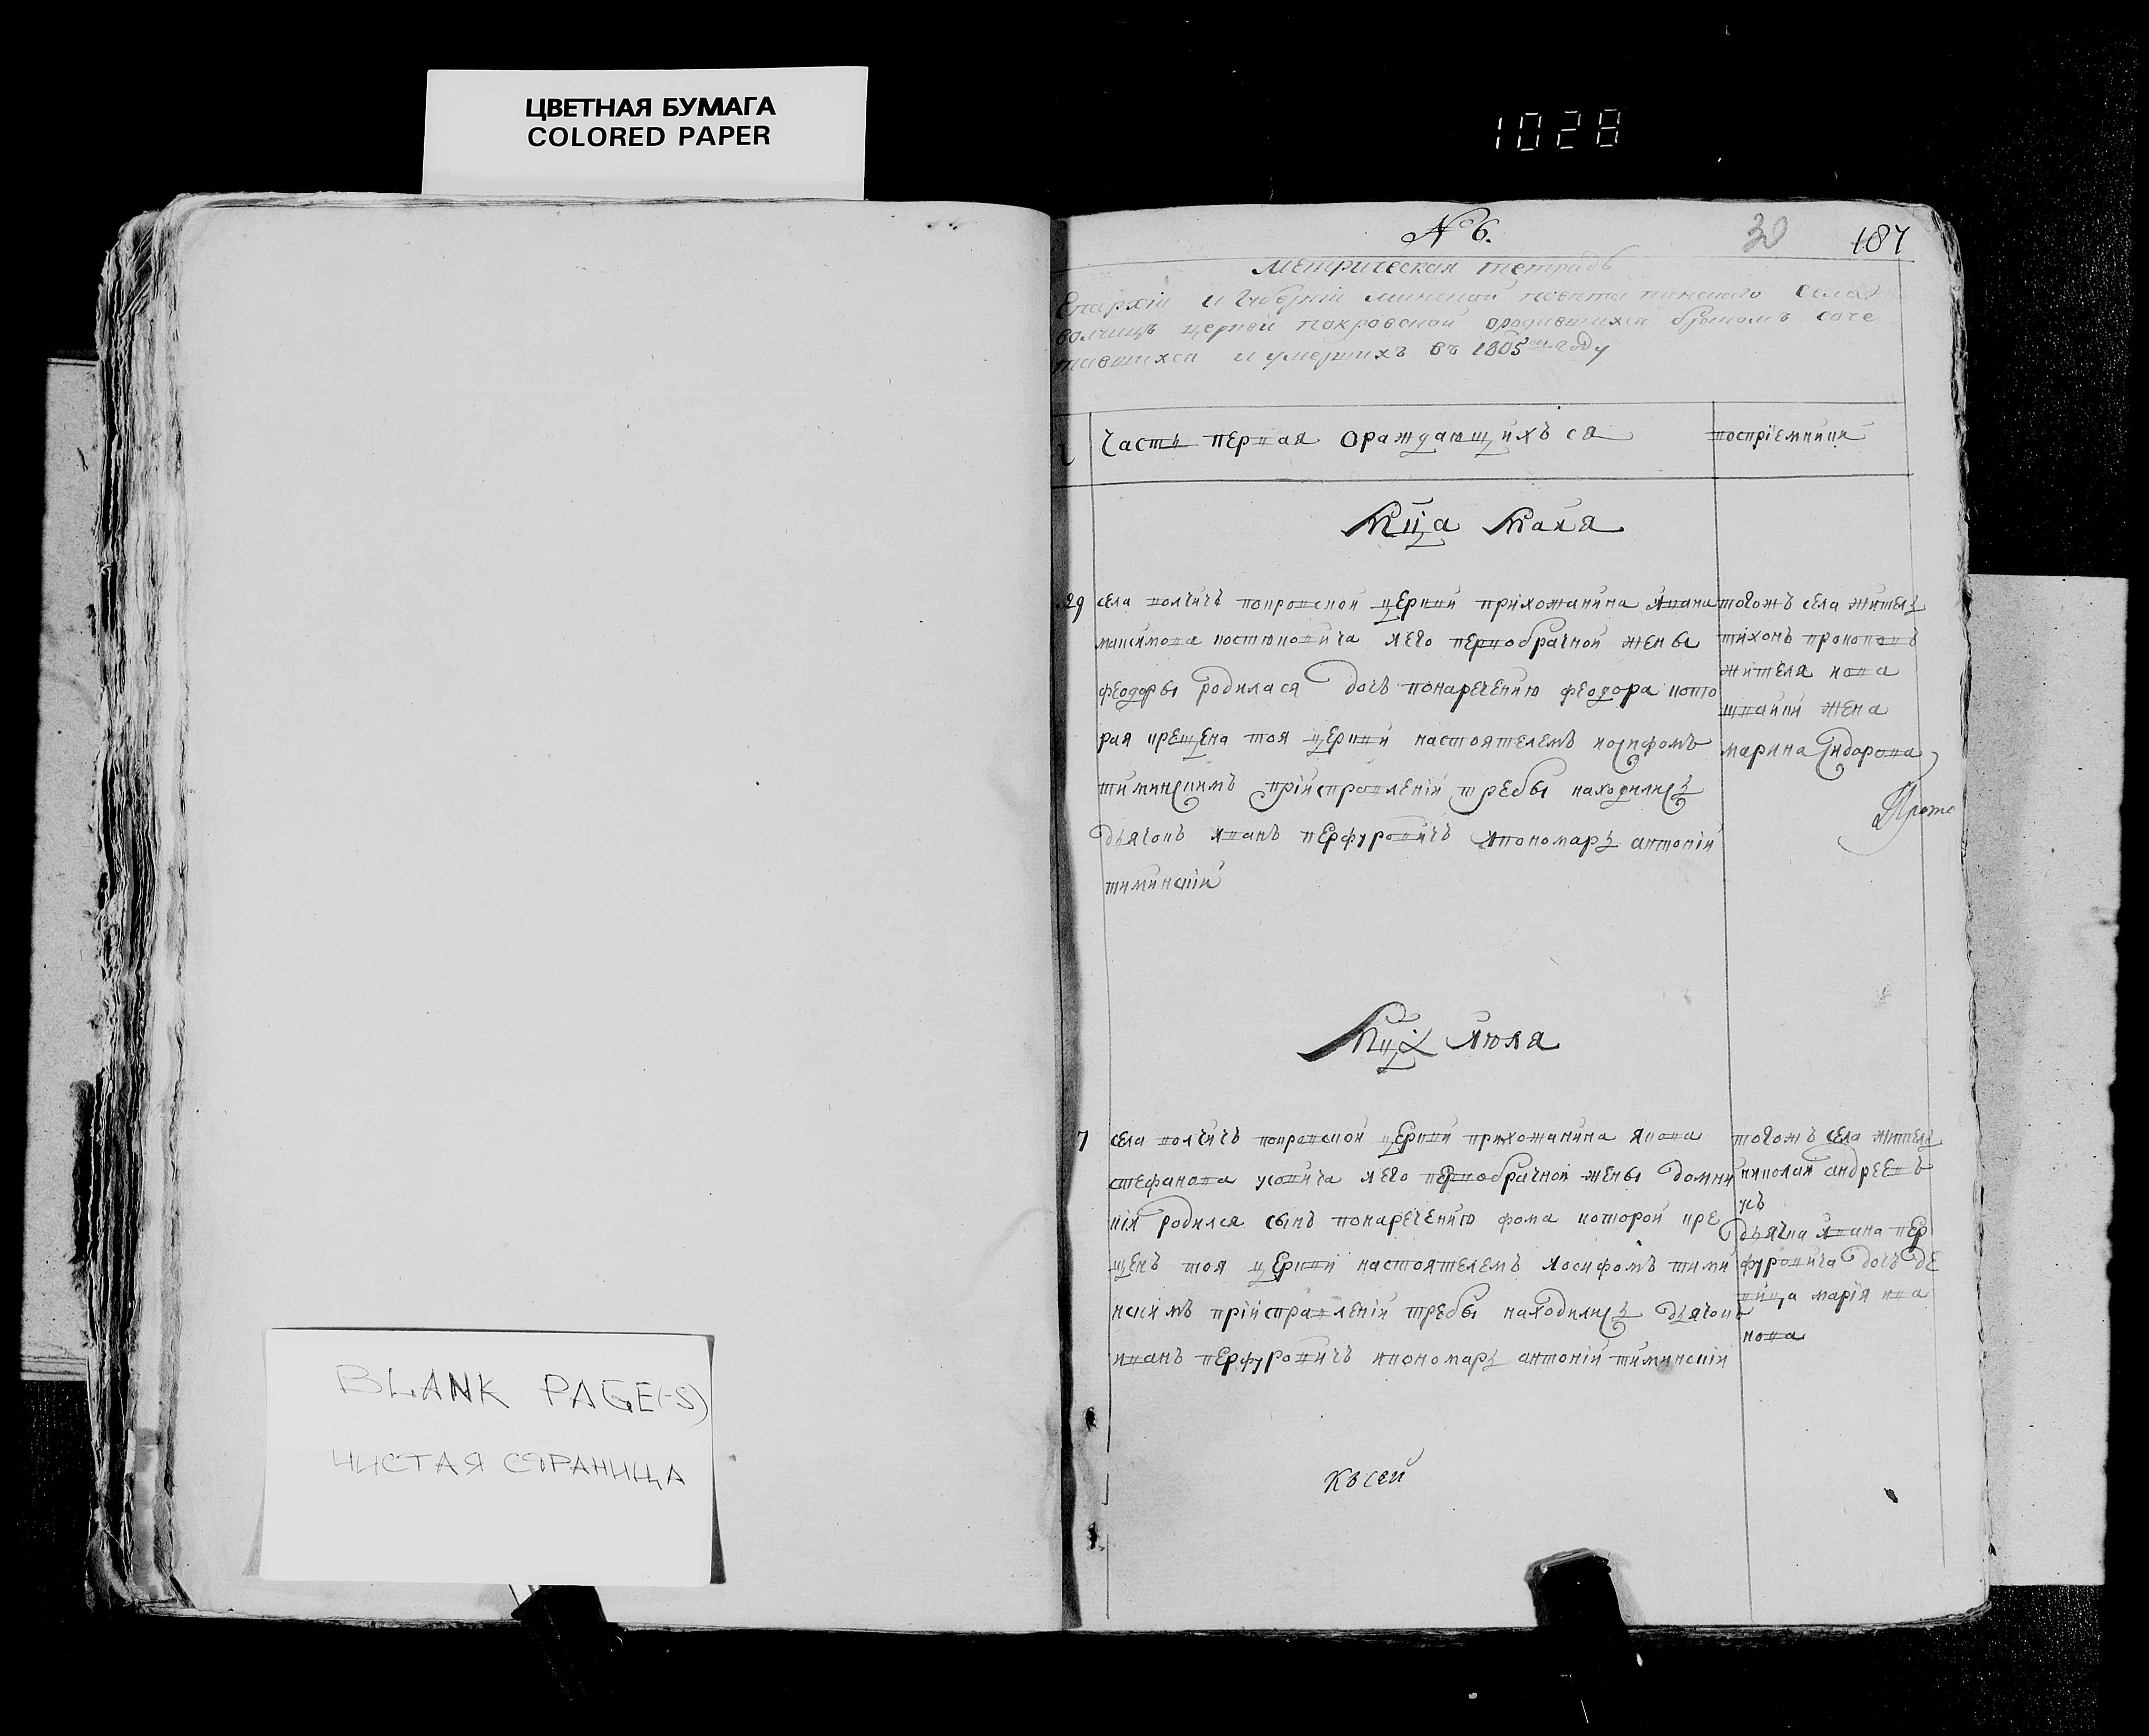 ЦВЕТНАЯ БУМАГА
COLORED PAPER
1028
№ 6.
30
187
Метрическая тетрадь
Епархіи и Губерніи минской повѣта пинского села
волчицъ церкви покровской ородившихся бракомъ соче
тавшихся и умершихъ въ 1805 году
Часть первая ораждающихъ ся
воспріемники
Мца Маия
29
села волчичъ покровской церкви прихожанина ивана
максимова костюковича иего первобрачной жены
феодоры родилася дочь понаречению феодора кото
рая крещена тоя церкви настоятелемъ иосифомъ
тиминскимъ прiисправленiи требы находились
дьячокъ иванъ перфуровичъ ипономарь антоній
тиминскій
тогожъ села житель
тихонъ прокоповъ
жителя
жена
марина сидорова
Прото
Мца июля
7
села волчичъ покровской церкви прихожанина якова
стефанова усовича иего первобрачной жены домни
кіи родился сынъ понаречению фома которой кре
щенъ тоя церкви настоятелемъ иосифомъ тими
нскимъ прiисправленiи требы находились дьячокъ
иванъ перфуровичъ ипономарь антоній тиминскій
тогожъ села житель
николай андреевъ
дьячка ивана пер
фуровича дочь де
вица марія ива
нова
Къ сей
BLANK PAGE(-S)
ЧИСТАЯ СТРАНИЦА